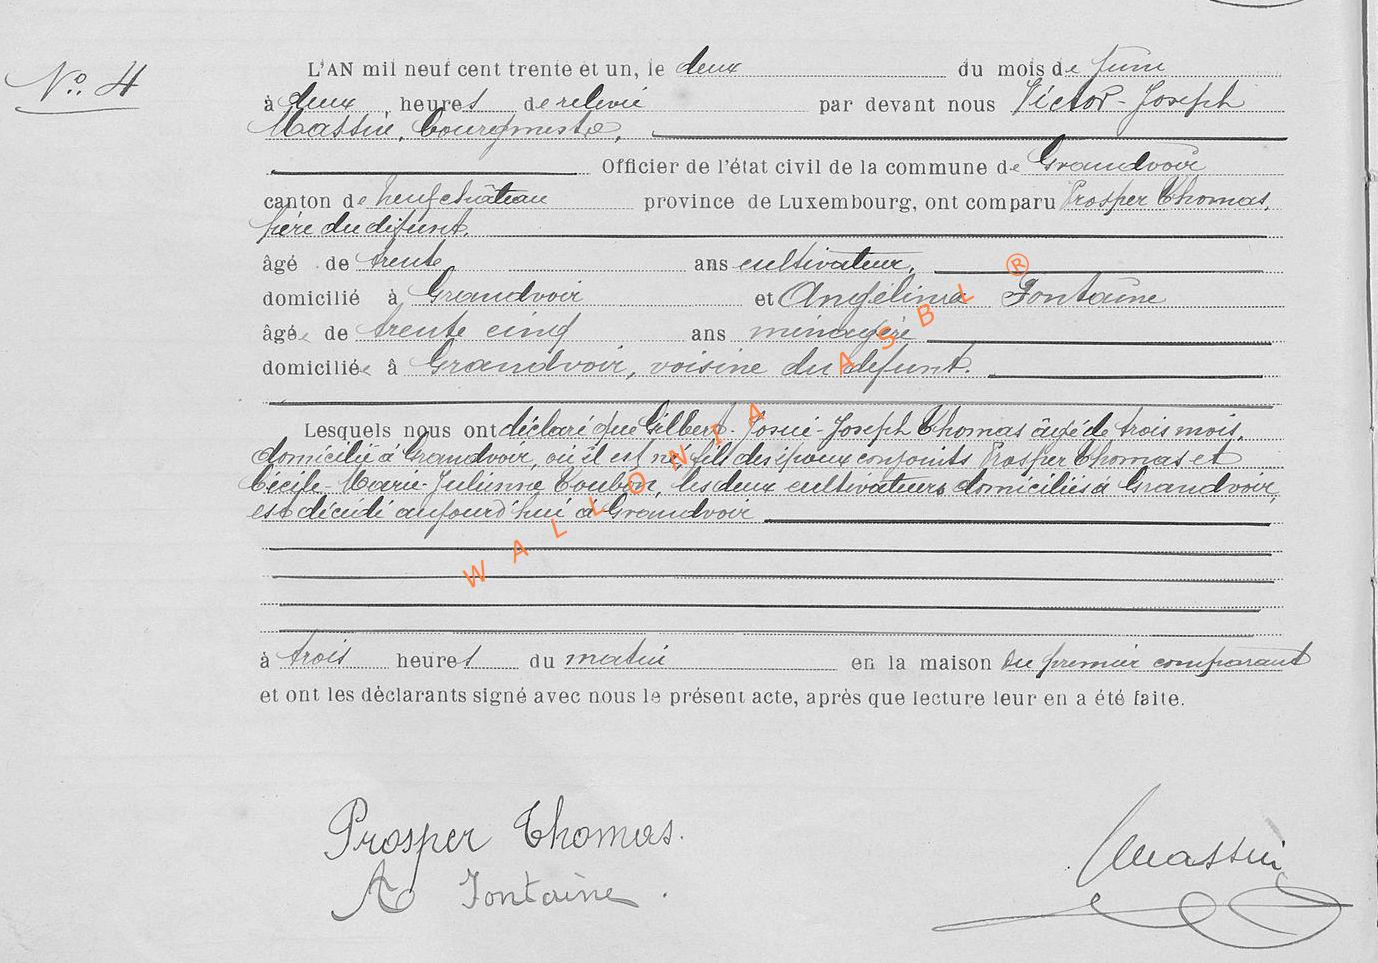 N° 4
L'AN mil neuf cent trente et un, le deux du mois de Juin
à deux heures de relevée par devant nous Victor-Joseph
Massin, bourgmestre,
Officier de l'état civil de la commune de Grandvoir
canton de Neufchâteau province de Luxembourg, ont comparu Prosper Thomas,
père du défunt,
âgé de trente ans cultivateur,
domicilié à Grandvoir et Angélina Fontaine
âgée de trente cinq ans ménagère
domiciliée à Grandvoir, voisine du défunt.
Lesquels nous ont déclaré que Gilbert-Josué-Joseph Thomas âgé de trois mois,
domicilié à Grandvoir, où il est né, fils des époux conjoints Prosper Thomas et
Cécile-Marie-Julienne Toubon, les deux cultivateurs domiciliés à Grandvoir,
est décédé aujourd'hui à Grandvoir
à trois heures du matin en la maison du premier comparant
et ont les déclarants signé avec nous le présent acte, après que lecture leur en a été faite.
Prosper Thomas.
A Fontaine.
Massin
WALLONIA ASBL ®